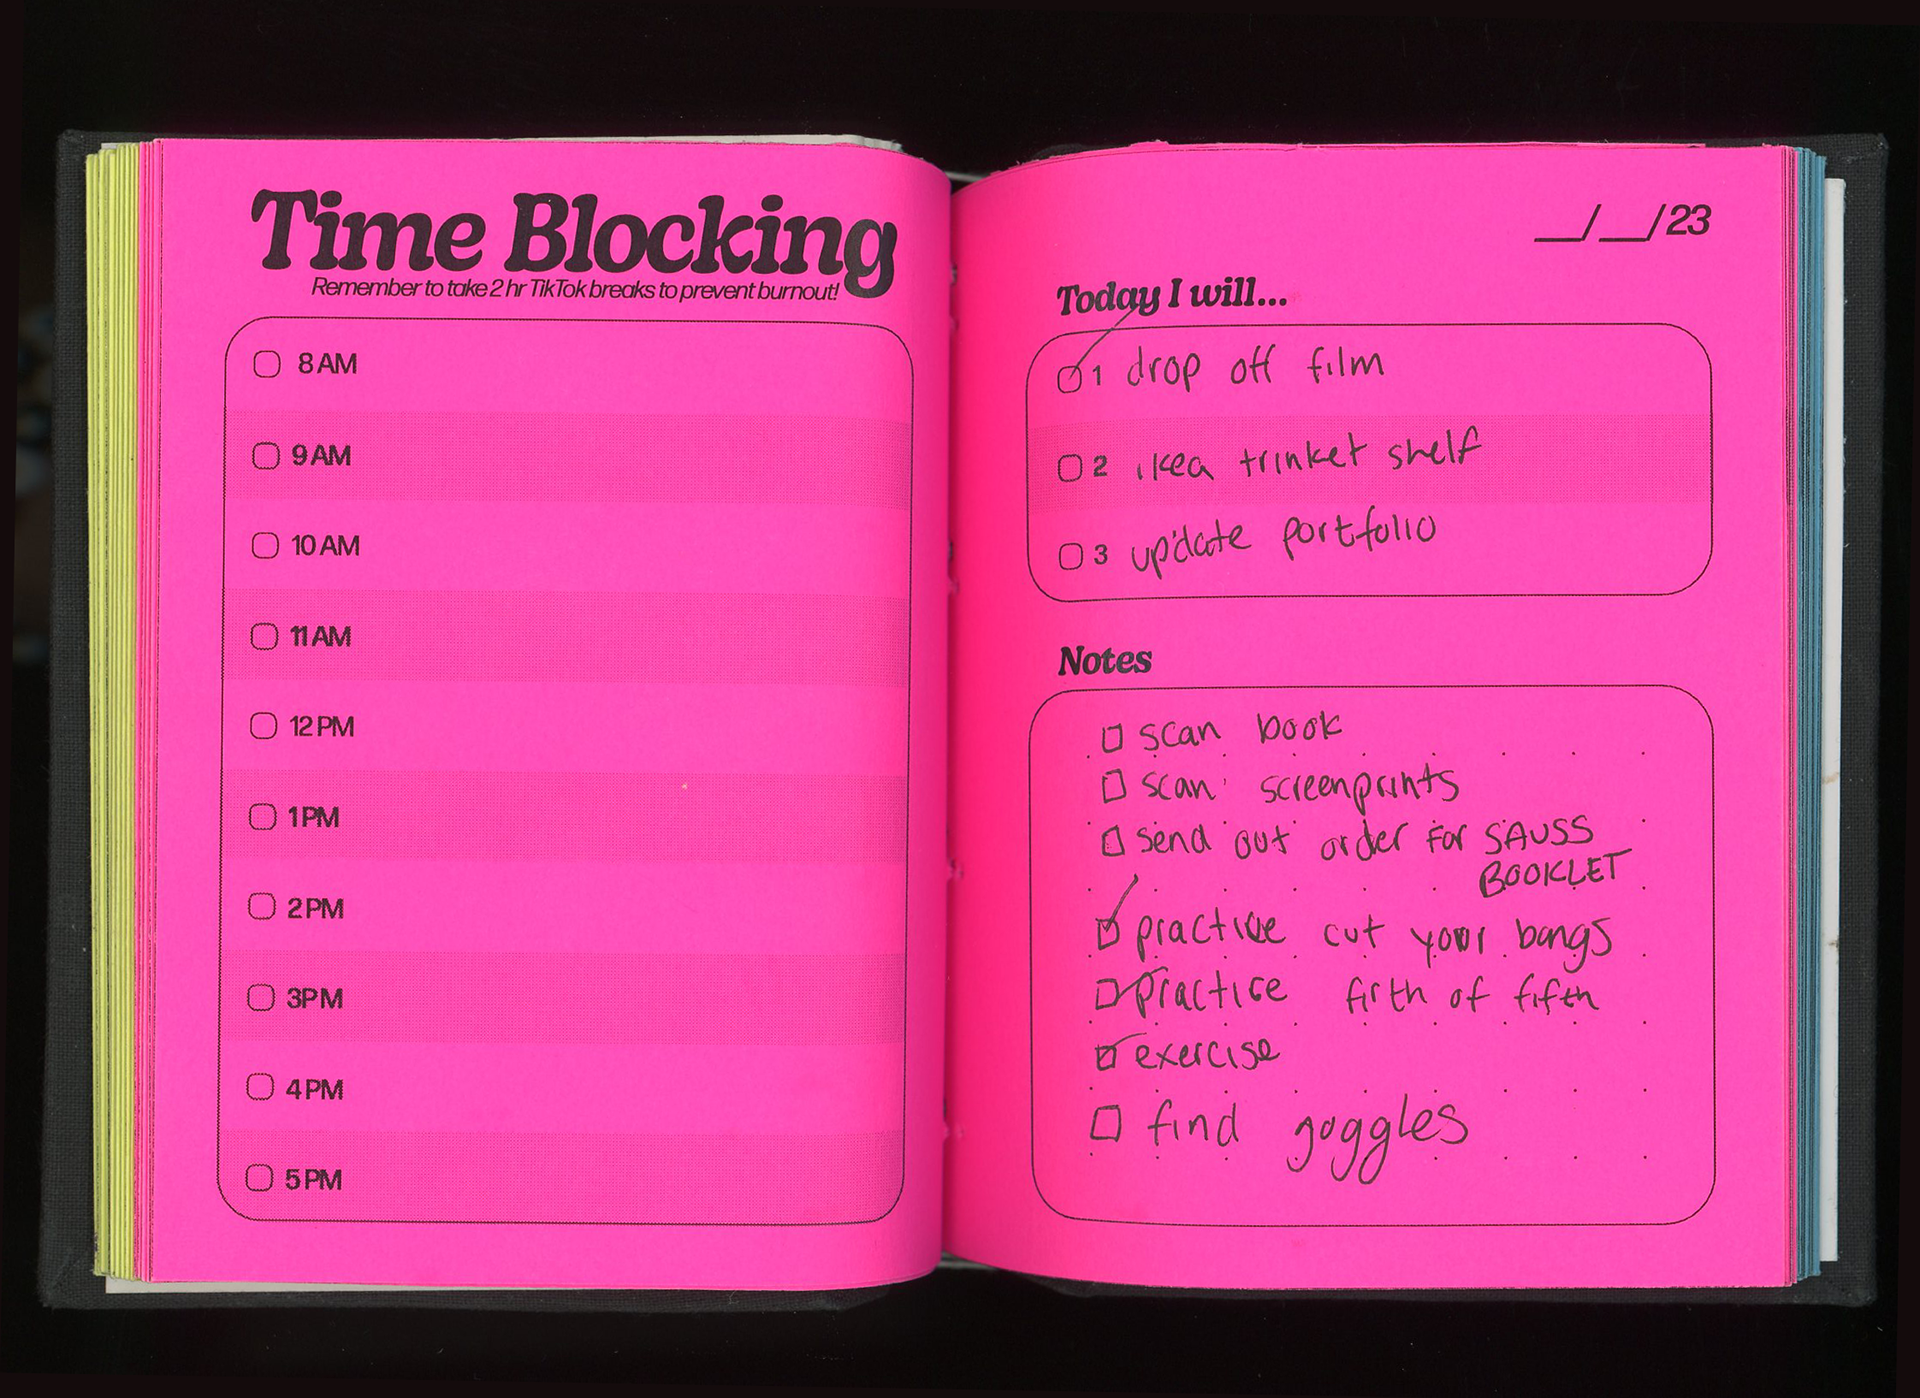 Time Blocking
Remember to take 2 hr TikTok breaks to prevent burnout!
8 AM
9 AM
10 AM
11 AM
12 PM
1 PM
2 PM
3 PM
4 PM
5 PM
__/__/23
Today I will...
1 drop off film
2 ikea trinket shelf
3 update portfolio
Notes
scan book
scan screenprints
send out order for SAUSS
BOOKLET
practice cut your bangs
practice firth of fifth
exercise
find goggles